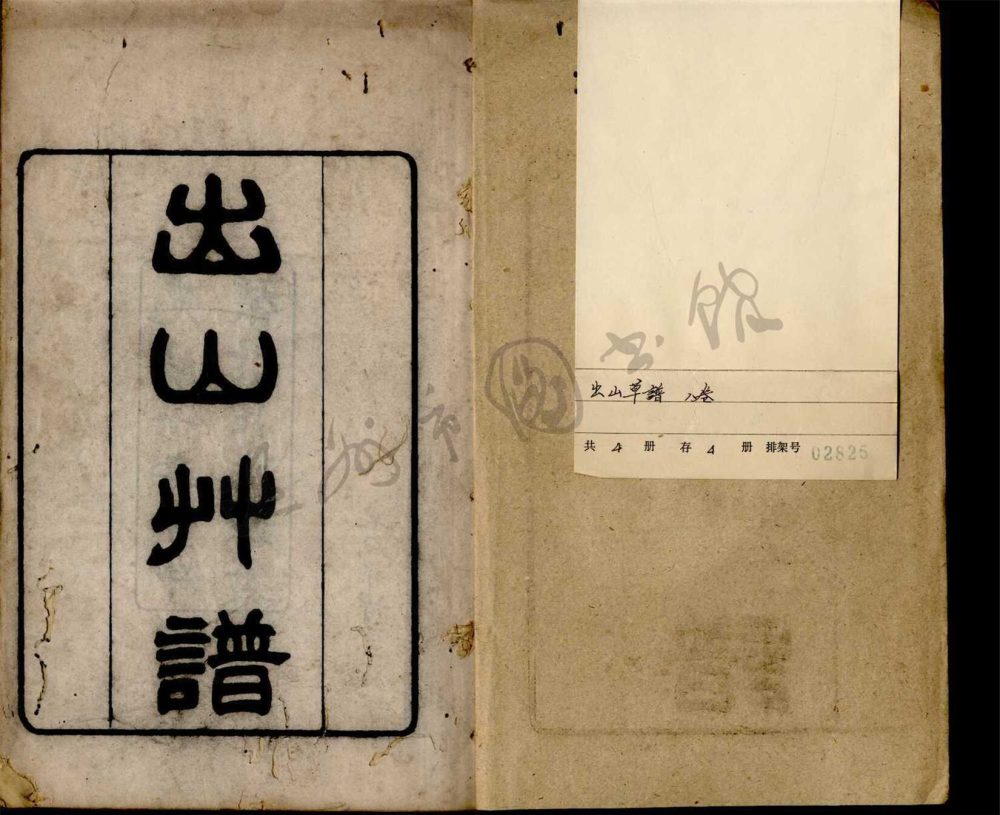 出山艸譜
出山草譜 八卷
共 4 册 存 4 册 排架号 02825